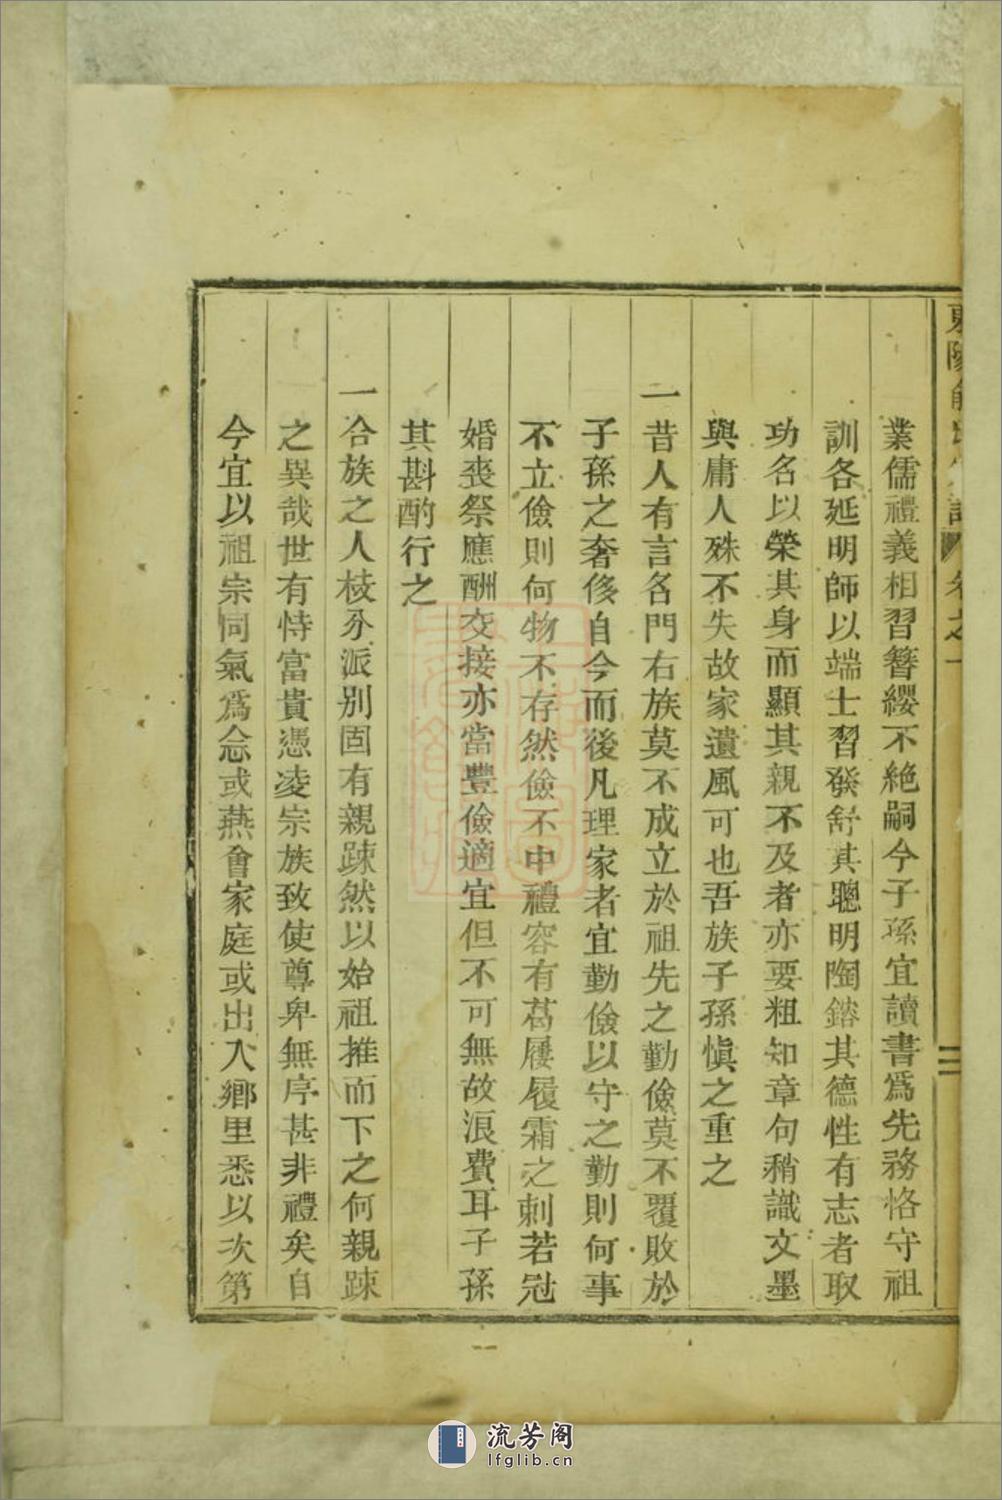 業儒禮義相習簪纓不絶嗣今子孫宜讀書爲先務恪守祖
訓各延明師以端士習發舒其聰明陶鎔其德性有志者取
功名以榮其身而顯其親不及者亦要粗知章句稍識文墨
與庸人殊不失故家遺風可也吾族子孫愼之重之
一昔人有言各門右族莫不成立於祖先之勤儉莫不覆敗於
子孫之奢侈自今而後凡理家者宜勤儉以守之勤則何事
不立儉則何物不存然儉不中禮容有葛屨履霜之刺若冠
婚喪祭應酬交接亦當豐儉適宜但不可無故浪費耳子孫
其斟酌行之
一合族之人枝分派別固有親踈然以始祖推而下之何親踈
之異哉世有恃富貴憑凌宗族致使尊卑無序甚非禮矣自
今宜以祖宗同氣爲念或燕會家庭或出入鄉里悉以次第
流芳阁
lfglib.cn